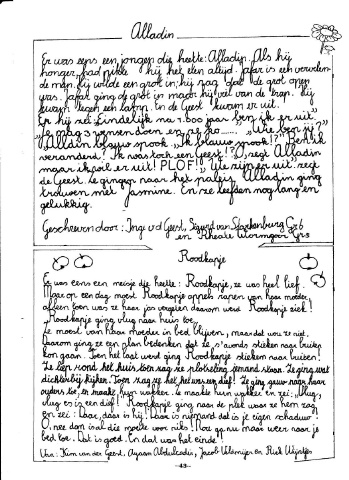 Alladin
Er was eens een jongen die heette: Alladin. Als hij
honger had pikte hij het eten altijd. Jafar is een vervelen-
de man. Hij wilde een grot in; hij zag dat de grot open
was. Jafar ging de grot in maar hij viel van de trap. Hij
kwam tegen een lamp. En de Geest kwam er uit.
Er hij zei: Eindelijk na 1.800 jaar ben ik er uit"
Je mag 3 wensen doen en ze zo...... "Wie ben jij?"
"Alladin blauw spook" "Ik blauw spook!?" Ben ik
veranderd? Ik was toch een Geest!?" "O," zegt Alladin
maar ik wil er uit! PLOF!" "We zijn er uit" zegt
de Geest. Ze gingen naar het paleis Alladin ging
trouwen met Jasmine. En ze leefden nog lang en
gelukkig.
Geschreven door: Inga vd Geest, Sigurd van Starkenburg Gr.6
en Rheate Gr.5
Roodkapje
Er was eens een meisje die heette: Roodkapje, ze was heel lief.
Maar op een dag moest Roodkapje appels rapen van haar moeder
alleen toen was ze haar jas vergeten daarom werd Roodkapje ziek!
Roodkapje ging vlug naar huis toe.
Ze moest van haar moeder in bed blijven, maar dat wou ze niet,
daarom ging ze een plan bedenken dat ze 's avonds stieken naar buiten
kon gaan. Toen het laat werd ging Roodkapje stieken naar buiten!
Ze liep rond het huis toen zag ze plotseling iemand staan. Ze ging wat
dichterbij kijken. Toen zag ze het was een dief! Ze ging gauw naar haar
ouders toe, en maakte hun wakker. Ze maakte hun wakker en zei: "Vlug,
vlug er is een dief! Roodkapje ging naar de plek waar ze hem zag
en zei: Daar, daar is hij! Daar is niemand dat is je eigen schaduw!
O, nee dan is al die moeite voor niks! Roe ga nu maar weer naar je
bed toe. Dat is goed. En dat was het einde!
Van: Kim van der Geest, Ayaan Abdulcadir, Jacob Uilemijer en Rick Wijntjes
-43-